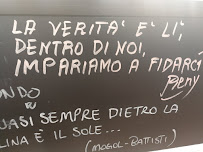 LA VERITA' E' LÌ,
DENTRO DI NOI,
IMPARIAMO A FIDARCI
Reny
NDO
è
UASI SEMPRE DIETRO LA
LINA È IL SOLE...
(MOGOL-BATTISTI)